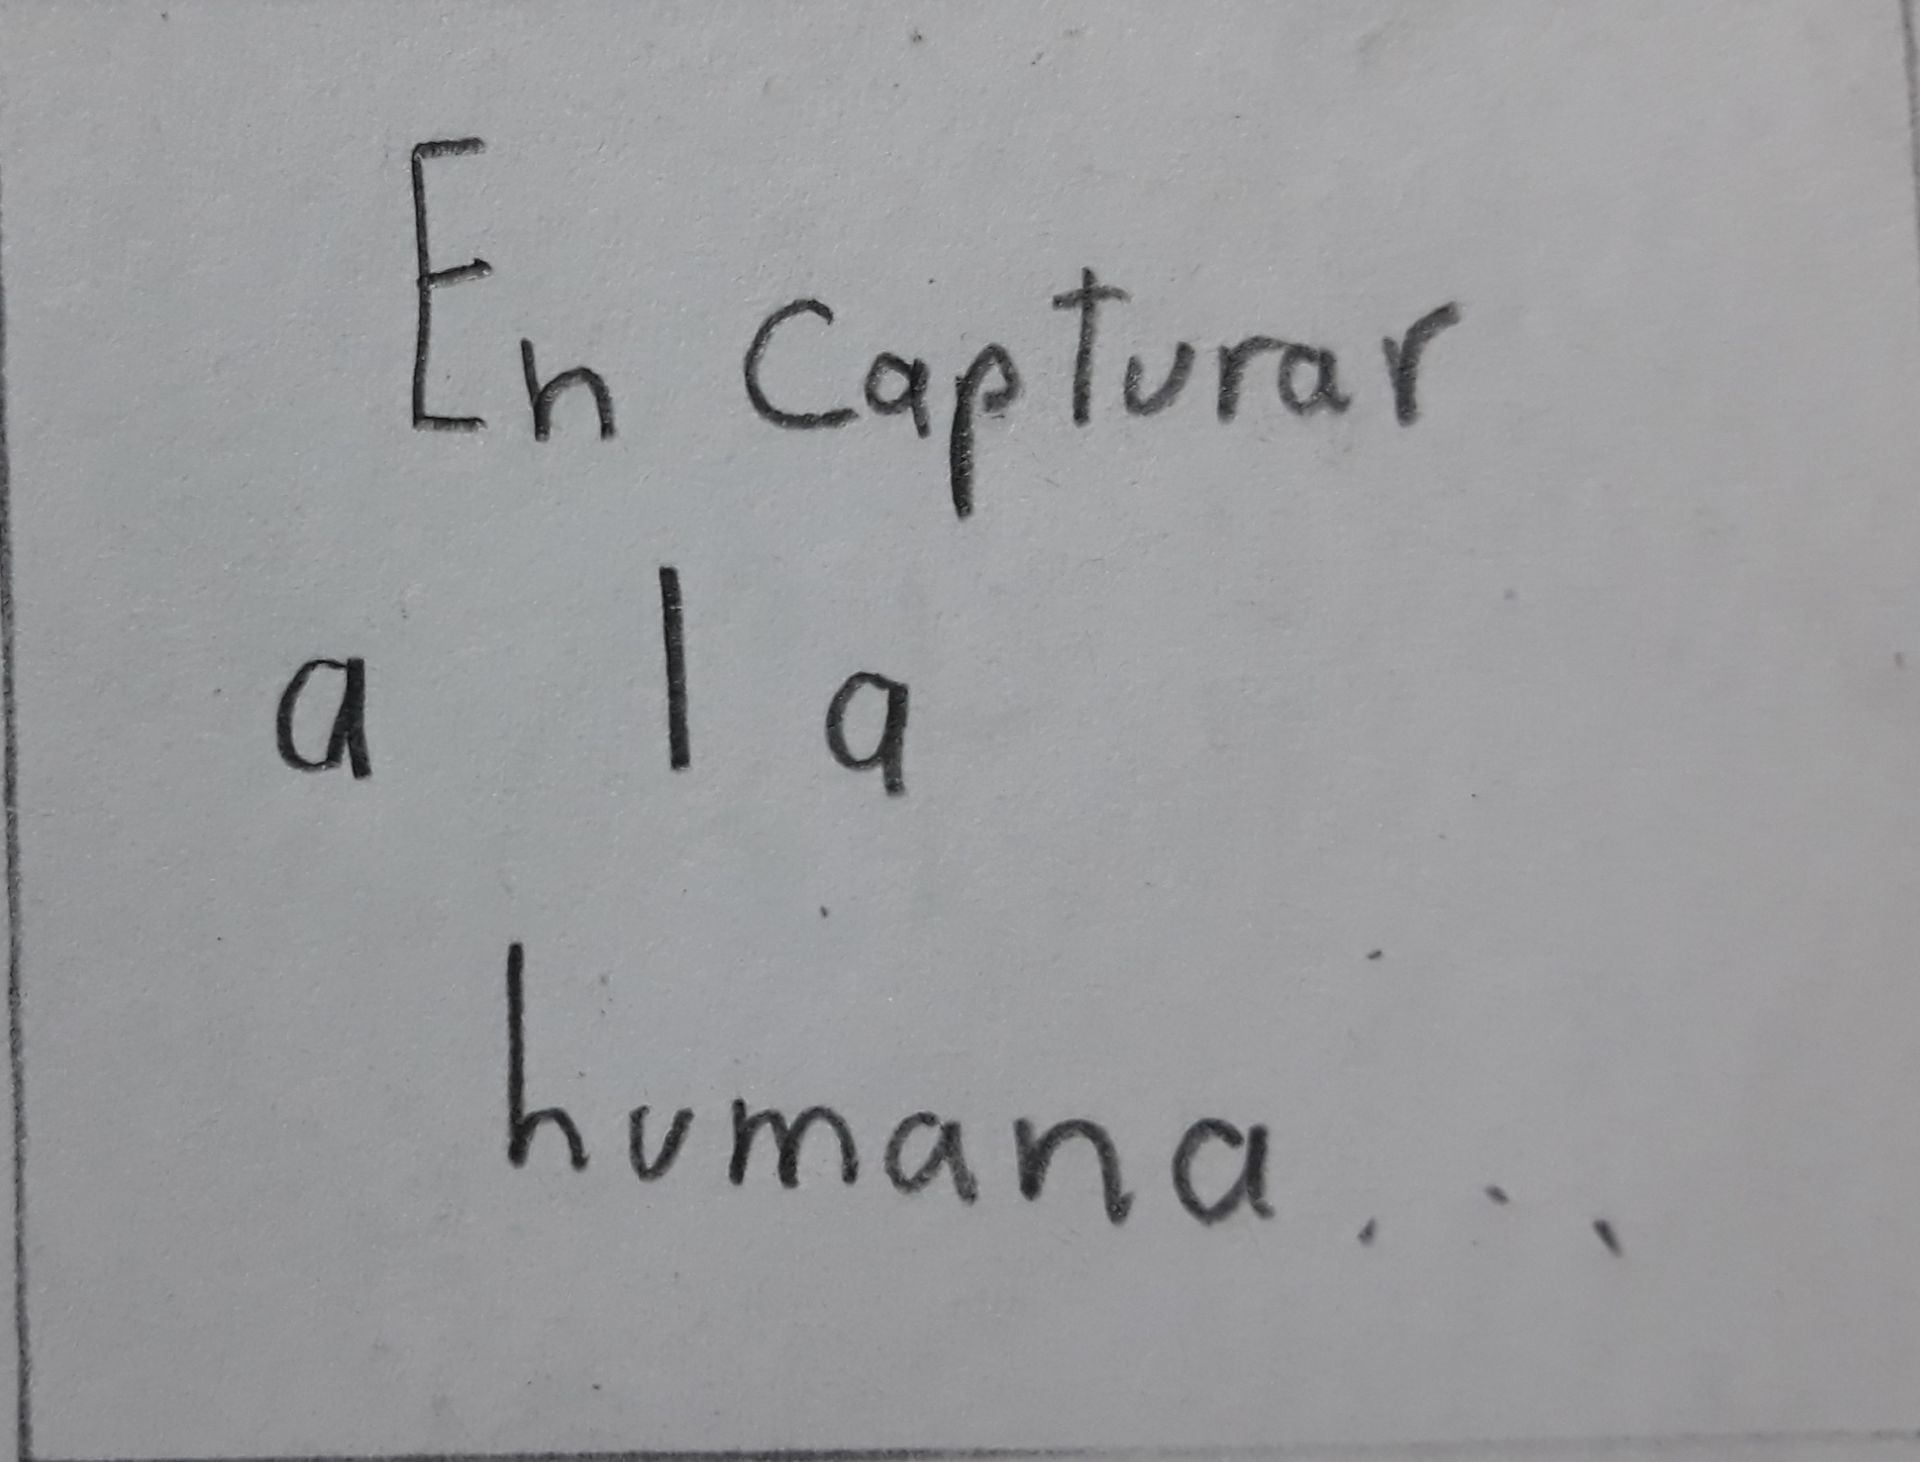 En Capturar
a la
humana...